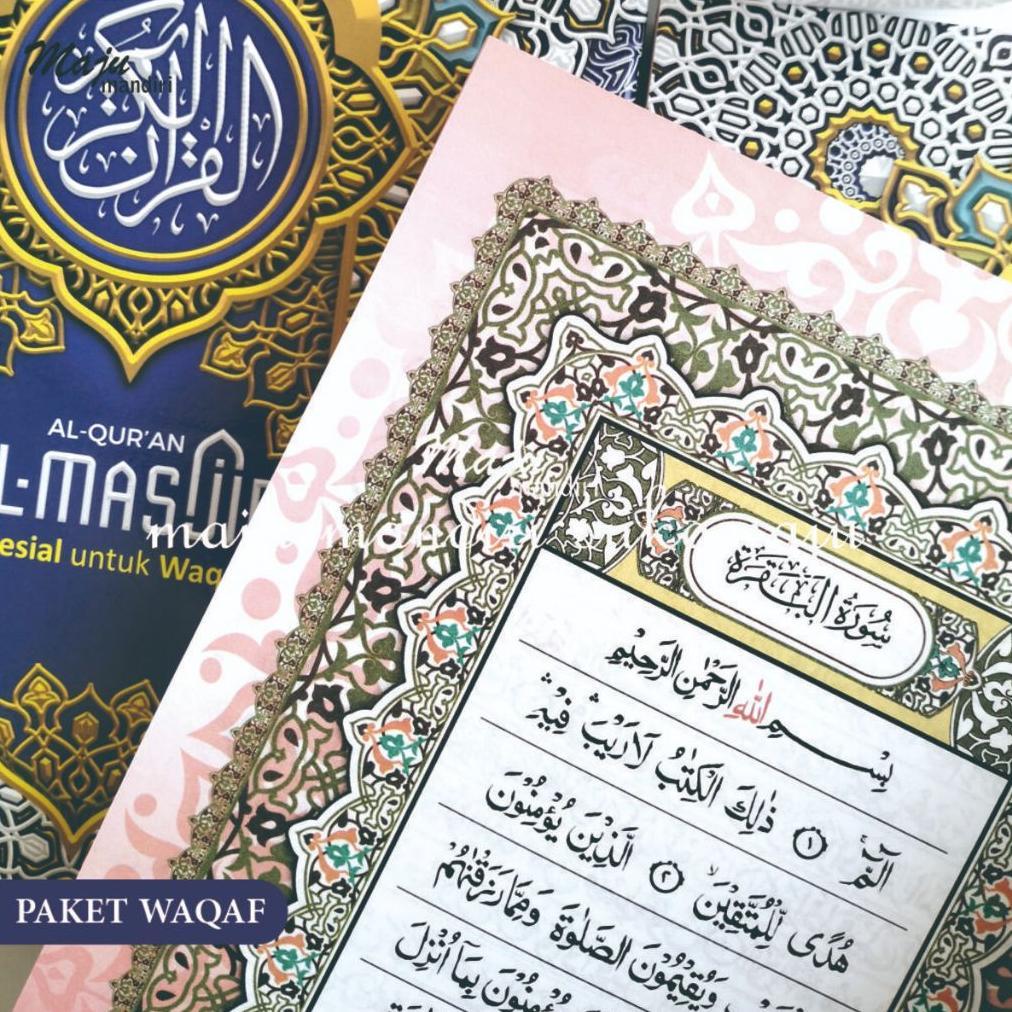 Maju
mandiri
القرآن الكريم
AL-QUR'AN
L-MASJID
esial untuk Waq
PAKET WAQAF
سُوْرَةُ الْبَقَرَةِ
بِسْمِ اللّٰهِ الرَّحْمٰنِ الرَّحِيْمِ
الۤمّۤ ۝١ ذٰلِكَ الْكِتٰبُ لَا رَيْبَ ۛ فِيْهِ ۛ
هُدًى لِّلْمُتَّقِيْنَۙ ۝٢ الَّذِيْنَ يُؤْمِنُوْنَ
وَيُقِيْمُوْنَ الصَّلٰوةَ وَمِمَّا رَزَقْنٰهُمْ
يُؤْمِنُوْنَ بِمَآ اُنْزِلَ